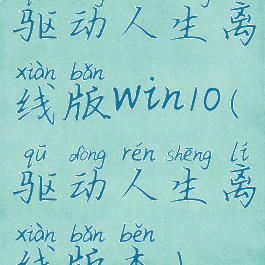 驱动人生离
xiàn bǎn
线版win10(
qū dòng rén shēng lí
驱动人生离
xiàn bǎn běn
线版本)